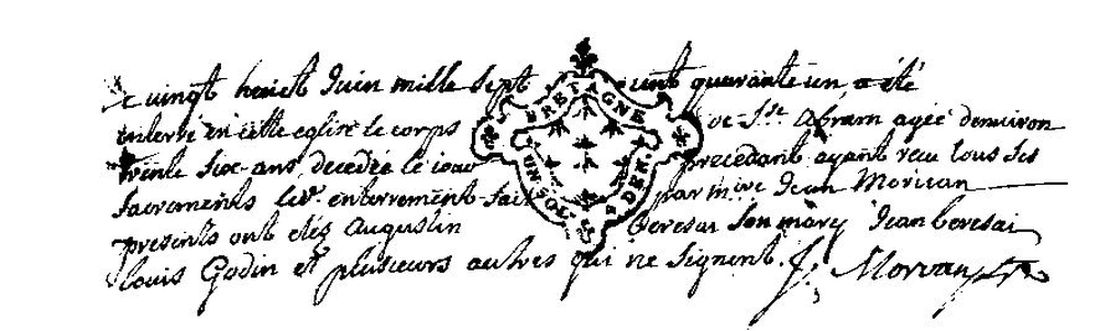 Le vingt huict Juin mille Sept cent quarante un a été
enterré en cette eglise le corps de Ste Abram agée denuiron
trente six ans, decedée le iour precedant ayant reçu tous ses
sacrements led. enterrement fait par mire Jean Morvan
presents ont étéz Augustin Beresai son mary Jean beresai
louis Godin et plusieurs autres qui ne signent. J. Morvan
BRETAGNE
UN SOL